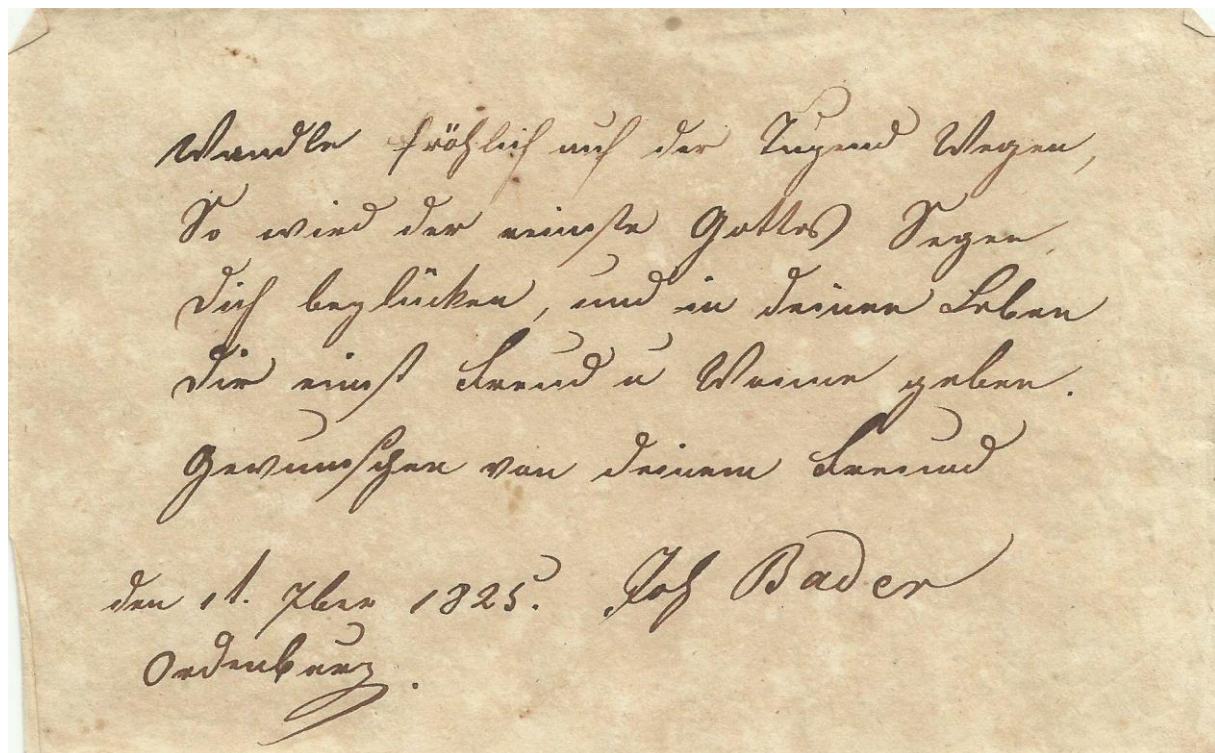 Wandle fröhlich auf der Tugend Wegen,
So wird der reinste Gottes Segen
Dich beglücken, und in deinen Leben
Dir einst Freud u Wonne geben.
Gewunschen von deinem Freund
den 11. 7ber 1825. Joh Bader
Ordenburg.